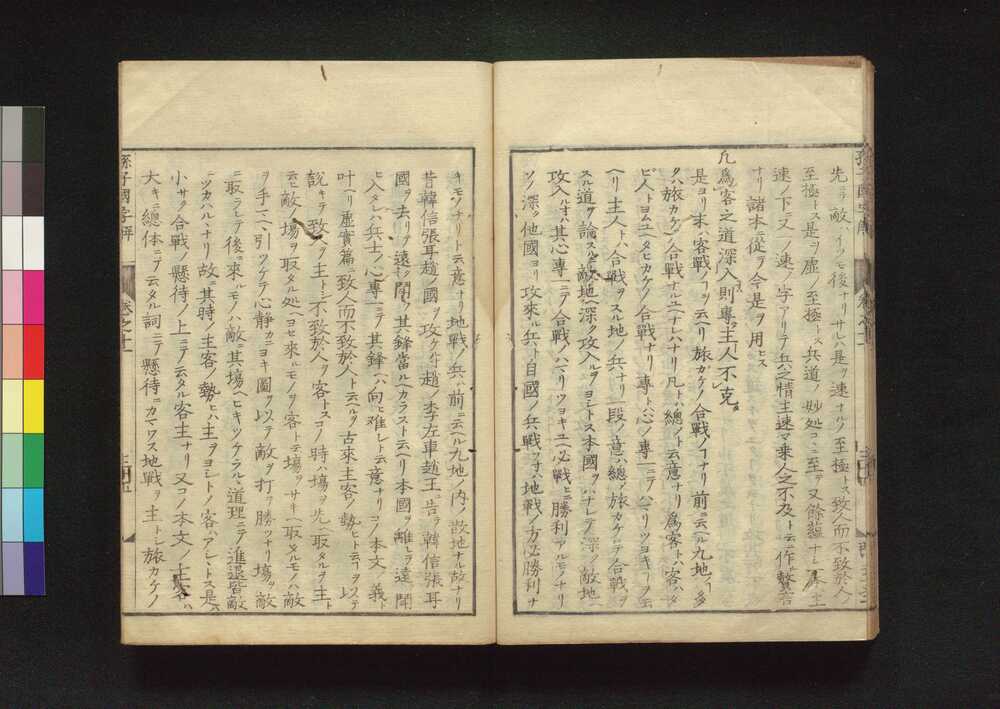 先ヲ敵ハイツモ後ナリサレハ是ヲ速ナルノ至極トス致人而不致於人ノ
至極トス是ヲ虚ノ至極トス兵道ノ妙処コヽニ至テ又餘蘊ナシ
速ノ下ニ又一ノ速ノ字アリテ兵之情主速速乗人之不及ト云ニ作
ナリ諸本ニ從テ今是ヲ用ヒス
凡爲客之道深入則專主人不克
是ヨリ末ハ客戰ノコヲ云ヘリ旅カケノ合戰ノコナリ前ニ云ヘル九地ノコ多
クハ旅カケノ合戰ナルユヘナレハナリ凡トハ總ノト云意ナリ爲客トハ客ハタ
ビ人トヨムユヘタビカケノ合戰ナリ專トハ心ノ專一ニテハマリツヨキコヲ云
ヘリ主人トハ合戰ヲスル地ノ兵ナリ一段ノ意ハ總ノ旅カケニテ合戰ヲ
スル道ヲ論スルニ敵地ヘ深ク攻入ルヲヨシトス本國ヲハナレテ深ク敵地ヘ
攻入ルオハ其心專一ニテ合戰ノハマリツヨキユヘ必戰ヒニ勝利アルモノナリ
ソノ深ク他國ヨリ攻來ル兵ト自國ノ兵戰フオハ地戰ノ方必勝利ナ
キモノナリト云意ナリ地戰ノ兵ハ前ニ云ヘル九地ノ内ノ散地ナル故ナリ
昔韓信張耳趙ノ國ヲ攻ケルニ趙ノ李左車趙王ニ告テ韓信張耳
國ヲ去リテ遠ク鬪フ其鋒當ルヘカラスト云ヘリ本國ヲ離レテ遠ク鬪
ヒ入タレハ兵士ノ心專一ニテ其鋒ヘハ向ヒ難シト云意ナリコノ本文ノ義ト
叶ヘリ虚實篇ニ致人而不致於人ト云ヘルヲ古來主客ノ勢ヒト云コヲ以テ
説キテ致人ヲ主トシ不致於人ヲ客トスコノ時ハ場ヲ先ヘ取タルヲ主ト
云ヒ敵ノ場ヲ取タル処ヘヨセ來ルモノヲ客ト云場ヲサキヘ取タルモノハ敵
ヲ手マヘヽ引ツケテ心静カニヨキ圖ヲ以テ敵ヲ打テ勝ツナリ場ヲ敵
ニ取ラレテ後ニ來ルモノハ敵ニ其塲ヘヒキツケラルヽ道理ニテ進退皆敵
ニツカハルヽナリ故ニ其時ノ主客ノ勢ヒハ主ヲヨシトノ客ハアシヽトス是ハ
小サク合戰ノ懸待ノ上ニテ云タル客主ナリ又コノ本文ノ主客ハ
大キニ總体ニテ云タル詞ニテ懸待ニカマワス地戰ヲ主トシ旅カケノ
孫子國字解
卷之十一